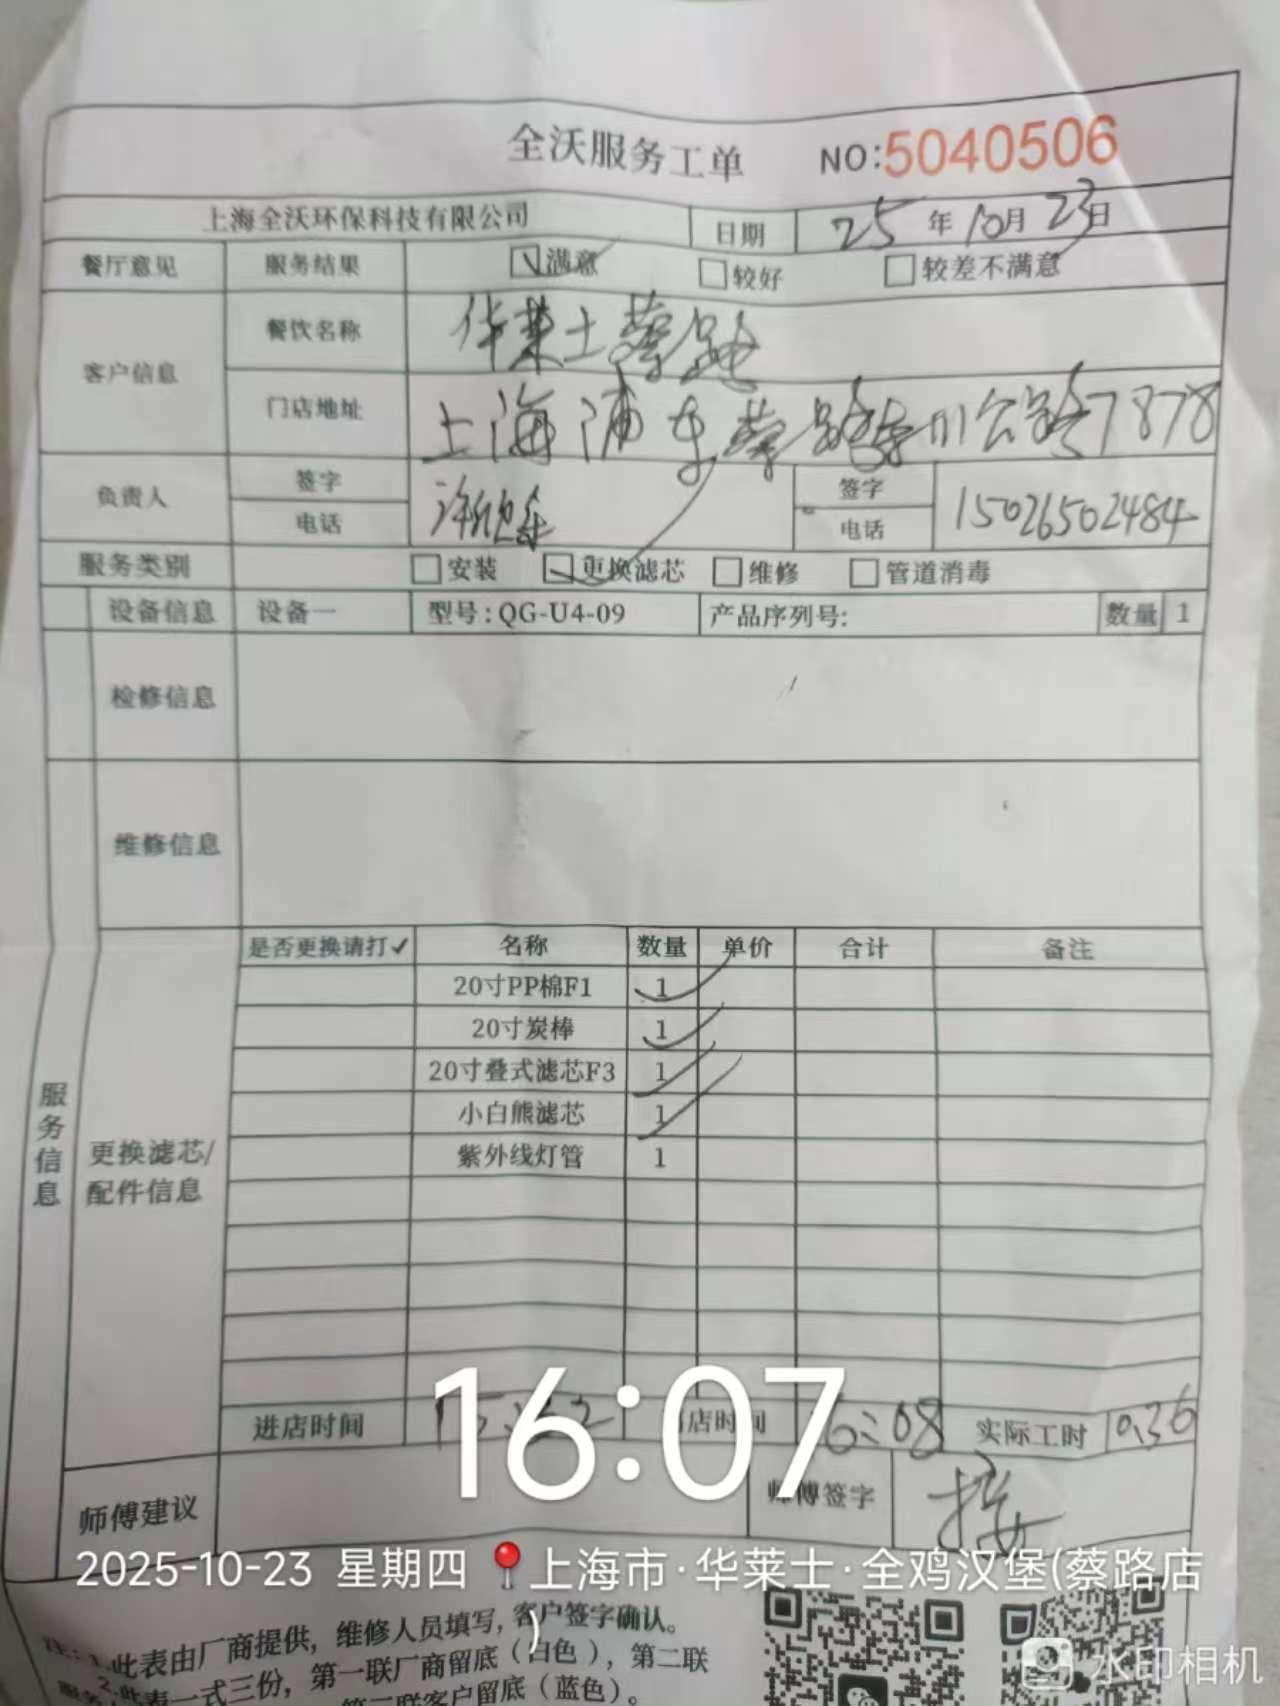 全沃服务工单 NO:5040506
上海全沃环保科技有限公司 日期 25年10月23日
餐厅意见 服务结果 满意 较好 较差不满意
客户信息 餐饮名称 华莱士蔡路
门店地址 上海浦东蔡路东川公路7878
负责人 签字 签字
电话 电话 15026502484
服务类别 安装 更换滤芯 维修 管道消毒
设备信息 设备一 型号:QG-U4-09 产品序列号: 数量 1
检修信息
维修信息
服务信息
更换滤芯/
配件信息
是否更换请打✓ 名称 数量 单价 合计 备注
20寸PP棉F1 1
20寸炭棒 1
20寸叠式滤芯F3 1
小白熊滤芯 1
紫外线灯管 1
进店时间 店时间 16:08 实际工时
16:07
师傅建议 师傅签字
2025-10-23 星期四 上海市·华莱士·全鸡汉堡(蔡路店
)
注:1.此表由厂商提供,维修人员填写,客户签字确认。
2.此表一式三份,第一联厂商留底(白色),第二联
服务 客户留底(蓝色)。
水印相机